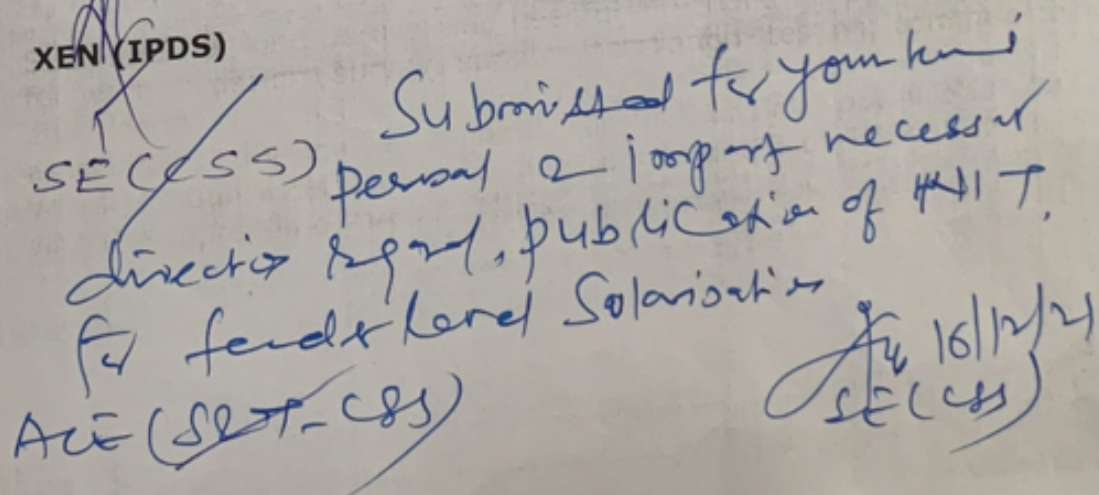 XEN (IPDS)
Submitted for your kind
SE (CSS) perusal & impart necessary
direction regard. publication of NIT.
for feeder level Solarisation
16/12/21
ACE ( CSS) SE (CSS)